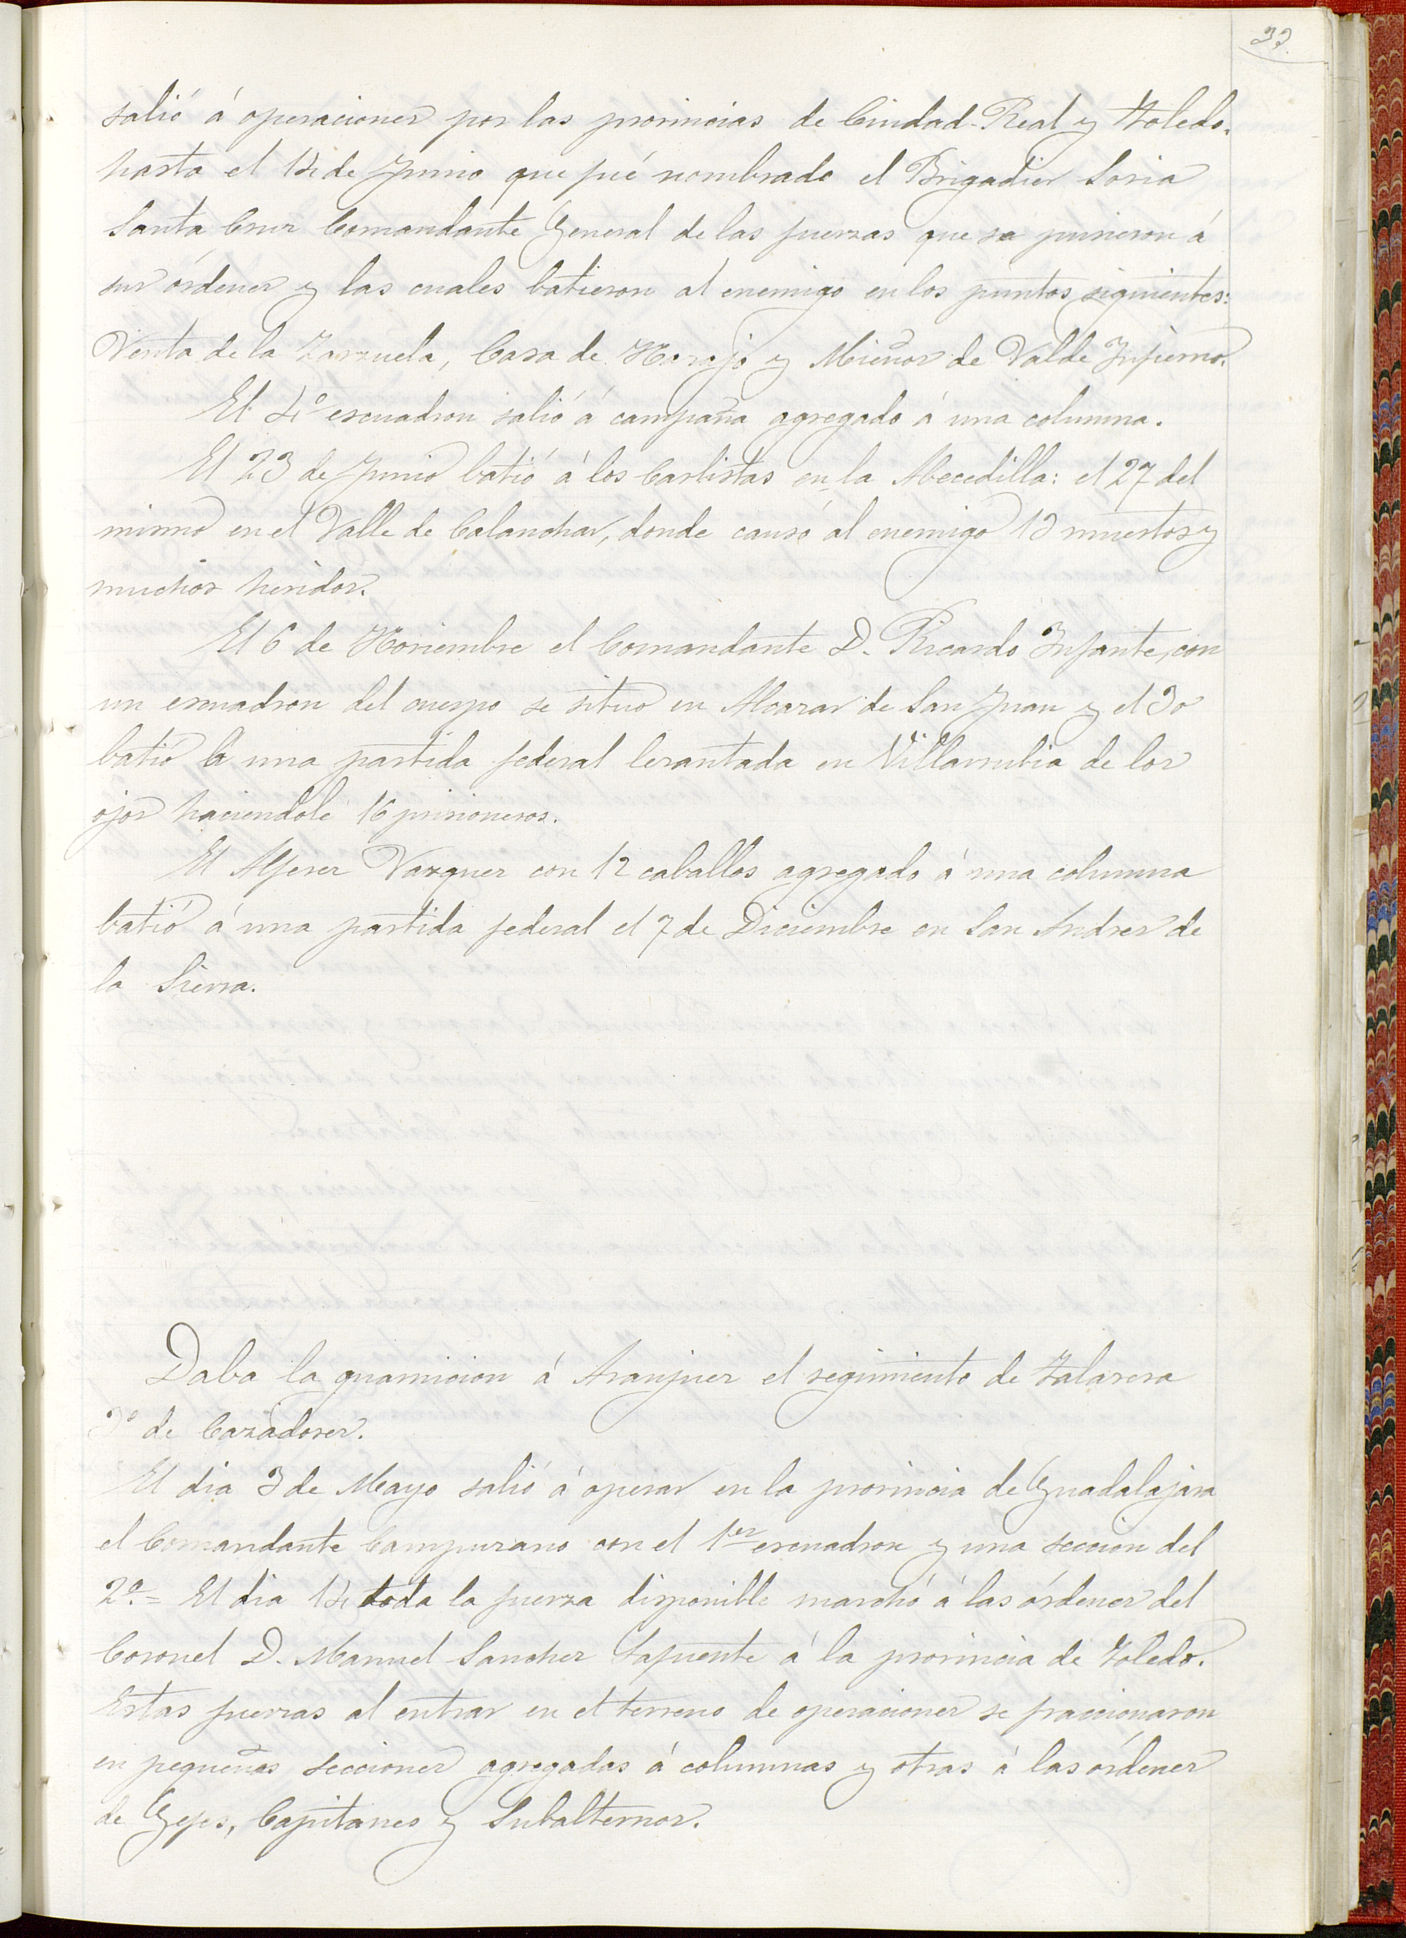 33
salió á operaciones por las provincias de Ciudad-Real y Toledo,
hasta el 14 de Junio que fué nombrado el Brigadier Soria
Santa Cruz Comandante General de las fuerzas que se pusieron á
sus órdenes y las cuales batieron al enemigo en los puntos siguientes:
Venta de la Zarzuela, Casa de Narajo y de Valde Infierno.
El 4º escuadron salió á campaña agregado á una columna.
El 23 de Junio batió á los Carlistas en la Mecedilla: el 27 del
mismo en el Valle de Calanchar, donde causó al enemigo 13 muertos y
muchos heridos.
El 6 de Noviembre el Comandante D. Ricardo Infante, con
un escuadron del cuerpo se situo en Alcazar de San Juan y el 30
batió á una partida federal levantada en Villarrubia de los
ojos haciendole 16 prisioneros.
El Alferez Vazquez con 12 caballos agregado á una columna
batió á una partida federal el 7 de Diciembre en San Andres de
la Sierra.
Daba la guarnicion á Aranjuez el regimiento de Talavera
3º de Cazadores.
El dia 3 de Mayo salió á operar en la provincia de Guadalajara
el Comandante Campuzano con el 1er escuadron y una seccion del
2º.= El dia 14 toda la fuerza disponible marchó á las órdenes del
Coronel D. Manuel Sanchez Lafuente á la provincia de Toledo.
Estas fuerzas al entrar en el terreno de operaciones se fraccionaron
en pequeñas secciones agregadas á columnas y otras á las órdenes
de Gefes, Capitanes y Subalternos.